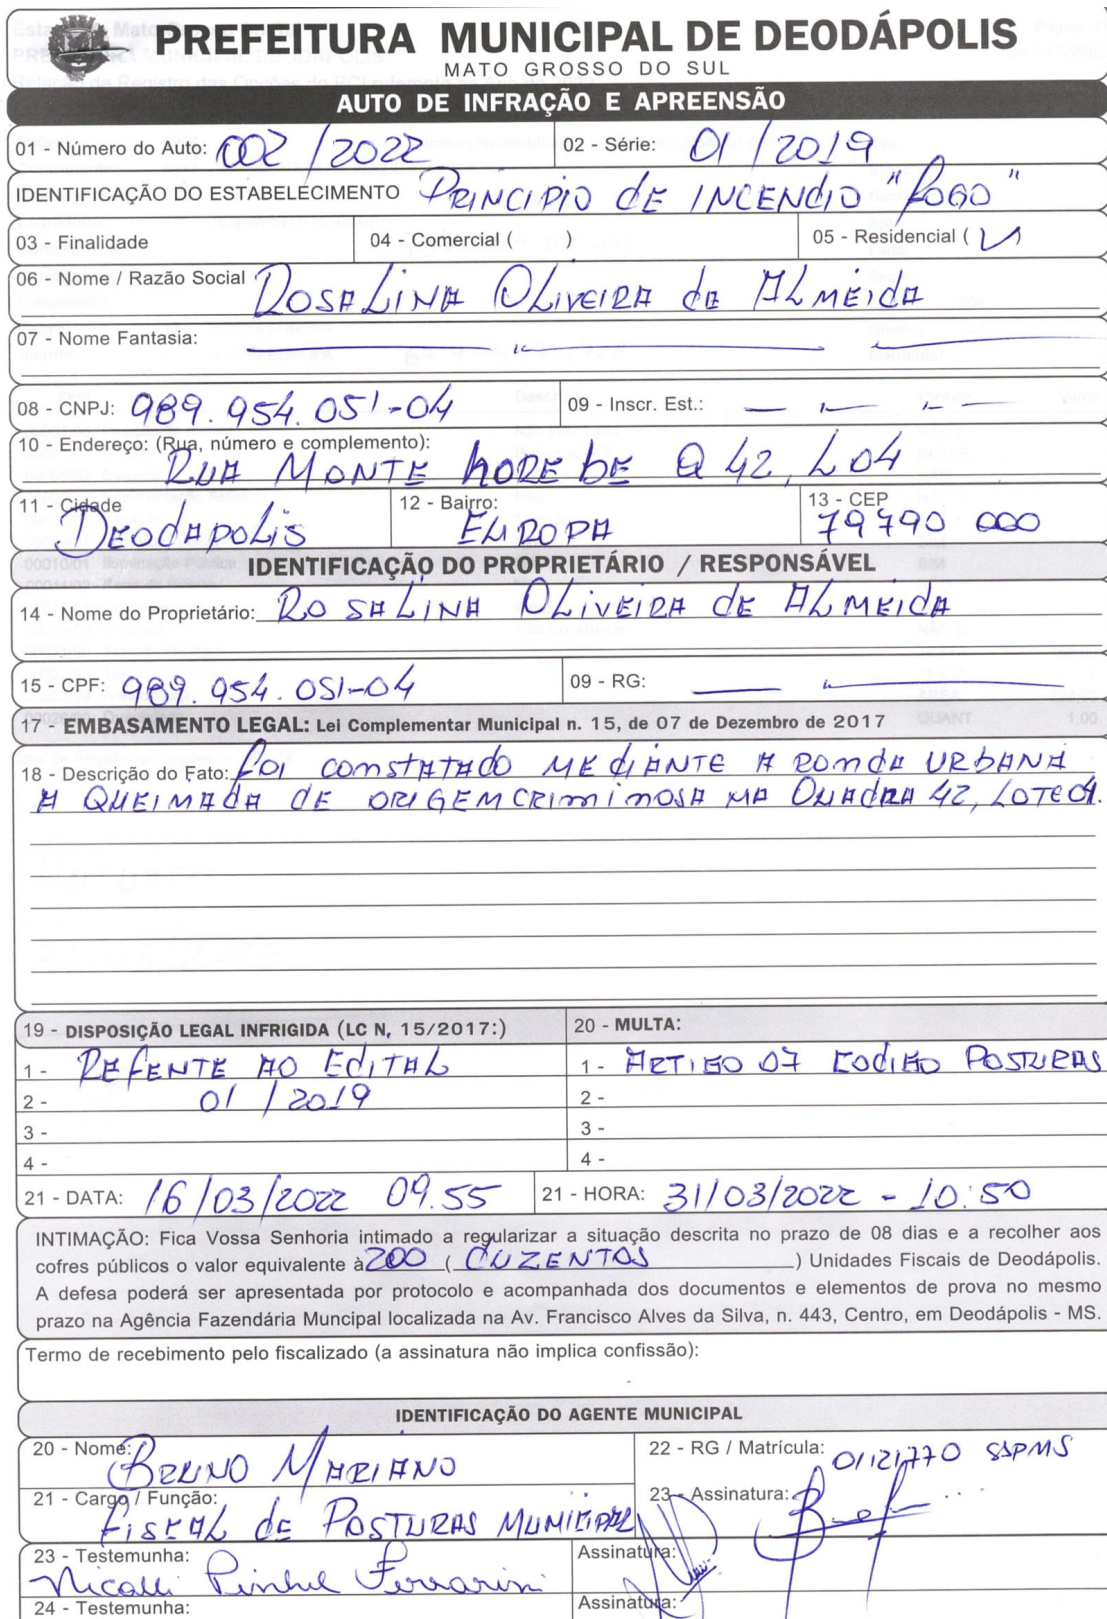 PREFEITURA MUNICIPAL DE DEODÁPOLIS
MATO GROSSO DO SUL
AUTO DE INFRAÇÃO E APREENSÃO
01 - Número do Auto: 002 / 2022 02 - Série: 01 / 2019
IDENTIFICAÇÃO DO ESTABELECIMENTO PRINCIPIO dE INCENdIO "fOGO"
03 - Finalidade 04 - Comercial ( ) 05 - Residencial ( ✓ )
06 - Nome / Razão Social ROSALINA OLIVEIRA de ALMEIdA
07 - Nome Fantasia:
08 - CNPJ: 989.954.051-04 09 - Inscr. Est.:
10 - Endereço: (Rua, número e complemento):
RUA MONTE hOREbE Q 42, L 04
11 - Cidade 12 - Bairro: 13 - CEP
DEOdAPOLIS EUROPA 79790 000
IDENTIFICAÇÃO DO PROPRIETÁRIO / RESPONSÁVEL
14 - Nome do Proprietário: ROSALINA OLIVEIRA dE ALMEIdA
15 - CPF: 989.954.051-04 09 - RG:
17 - EMBASAMENTO LEGAL: Lei Complementar Municipal n. 15, de 07 de Dezembro de 2017
18 - Descrição do Fato: fOI CONSTATAdO MEdIANTE A RONdA URbANA
A QUEIMAdA dE ORIGEM CRIMINOSA NA QUAdRA 42, LOTE 04.
19 - DISPOSIÇÃO LEGAL INFRIGIDA (LC N, 15/2017:) 20 - MULTA:
1 - REFENTE AO EdITAL 1 - ARTIGO 07 COdIGO POSTURAS
2 - 01 / 2019 2 -
3 - 3 -
4 - 4 -
21 - DATA: 16/03/2022 09.55 21 - HORA: 31/03/2022 - 10:50
INTIMAÇÃO: Fica Vossa Senhoria intimado a regularizar a situação descrita no prazo de 08 dias e a recolher aos
cofres públicos o valor equivalente à 200 ( dUZENTOS ) Unidades Fiscais de Deodápolis.
A defesa poderá ser apresentada por protocolo e acompanhada dos documentos e elementos de prova no mesmo
prazo na Agência Fazendária Muncipal localizada na Av. Francisco Alves da Silva, n. 443, Centro, em Deodápolis - MS.
Termo de recebimento pelo fiscalizado (a assinatura não implica confissão):
IDENTIFICAÇÃO DO AGENTE MUNICIPAL
20 - Nome: BRUNO MARIANO 22 - RG / Matrícula: 01121770 SSPMS
21 - Cargo / Função: 23 - Assinatura:
fISCAL dE POSTURAS MUNICIPAL
23 - Testemunha: Assinatura:
Nicalli Pinhel Ferrarini
24 - Testemunha: Assinatura: